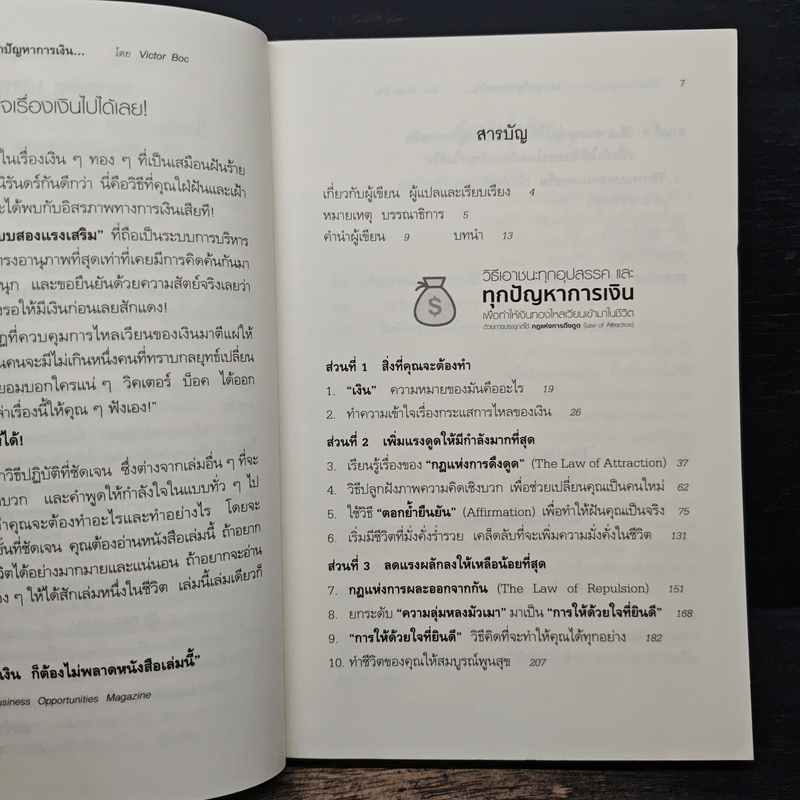 าปัญหาการเงิน... โดย Victor Boc
จเรื่องเงินไปได้เลย!
ในเรื่องเงิน ๆ ทอง ๆ ที่เป็นเสมือนฝันร้าย
นิรันดร์กันดีกว่า นี่คือวิธีที่คุณใฝ่ฝันและเฝ้า
ะได้พบกับอิสรภาพทางการเงินเสียที!
บบสองแรงเสริม” ที่ถือเป็นระบบการบริหาร
รงอานุภาพที่สุดเท่าที่เคยมีการคิดค้นกันมา
นุก และขอยืนยันด้วยความสัตย์จริงเลยว่า
งรอให้มีเงินก่อนเลยสักแดง!
ฎที่ควบคุมการไหลเวียนของเงินมาตีแผ่ให้
นคนจะมีไม่เกินหนึ่งคนที่ทราบกลยุทธ์เปลี่ยน
ยอมบอกใครแน่ ๆ วิคเตอร์ บ็อค ได้ออก
ล่าเรื่องนี้ให้คุณ ๆ ฟังเอง!”
ได้!
าวิธีปฏิบัติที่ชัดเจน ซึ่งต่างจากเล่มอื่น ๆ ที่จะ
บวก และคำพูดให้กำลังใจในแบบทั่ว ๆ ไป
่าคุณจะต้องทำอะไรและทำอย่างไร โดยจะ
ขั้นที่ชัดเจน คุณต้องอ่านหนังสือเล่มนี้ ถ้าอยาก
วิตได้อย่างมากมายและแน่นอน ถ้าอยากจะอ่าน
อง ๆ ให้ได้สักเล่มหนึ่งในชีวิต เล่มนี้เล่มเดียวก็
เงิน ก็ต้องไม่พลาดหนังสือเล่มนี้”
usiness Opportunities Magazine
7
สารบัญ
เกี่ยวกับผู้เขียน ผู้แปลและเรียบเรียง 4
หมายเหตุ บรรณาธิการ 5
คำนำผู้เขียน 9 บทนำ 13
วิธีเอาชนะทุกอุปสรรค และ
ทุกปัญหาการเงิน
เพื่อทำให้เงินทองไหลเวียนเข้ามาในชีวิต
ด้วยการประยุกต์ใช้ กฎแห่งการดึงดูด (Law of Attraction)
$
ส่วนที่ 1 สิ่งที่คุณจะต้องทำ
1. “เงิน” ความหมายของมันคืออะไร 19
2. ทำความเข้าใจเรื่องกระแสการไหลของเงิน 26
ส่วนที่ 2 เพิ่มแรงดูดให้มีกำลังมากที่สุด
3. เรียนรู้เรื่องของ “กฎแห่งการดึงดูด” (The Law of Attraction) 37
4. วิธีปลูกฝังภาพความคิดเชิงบวก เพื่อช่วยเปลี่ยนคุณเป็นคนใหม่ 62
5. ใช้วิธี “ตอกย้ำยืนยัน” (Affirmation) เพื่อทำให้ฝันคุณเป็นจริง 75
6. เริ่มมีชีวิตที่มั่งคั่งร่ำรวย เคล็ดลับที่จะเพิ่มความมั่งคั่งในชีวิต 131
ส่วนที่ 3 ลดแรงผลักลงให้เหลือน้อยที่สุด
7. กฎแห่งการผละออกจากกัน (The Law of Repulsion) 151
8. ยกระดับ “ความลุ่มหลงมัวเมา” มาเป็น “การให้ด้วยใจที่ยินดี” 168
9. “การให้ด้วยใจที่ยินดี” วิธีคิดที่จะทำให้คุณได้ทุกอย่าง 182
10. ทำชีวิตของคุณให้สมบูรณ์พูนสุข 207